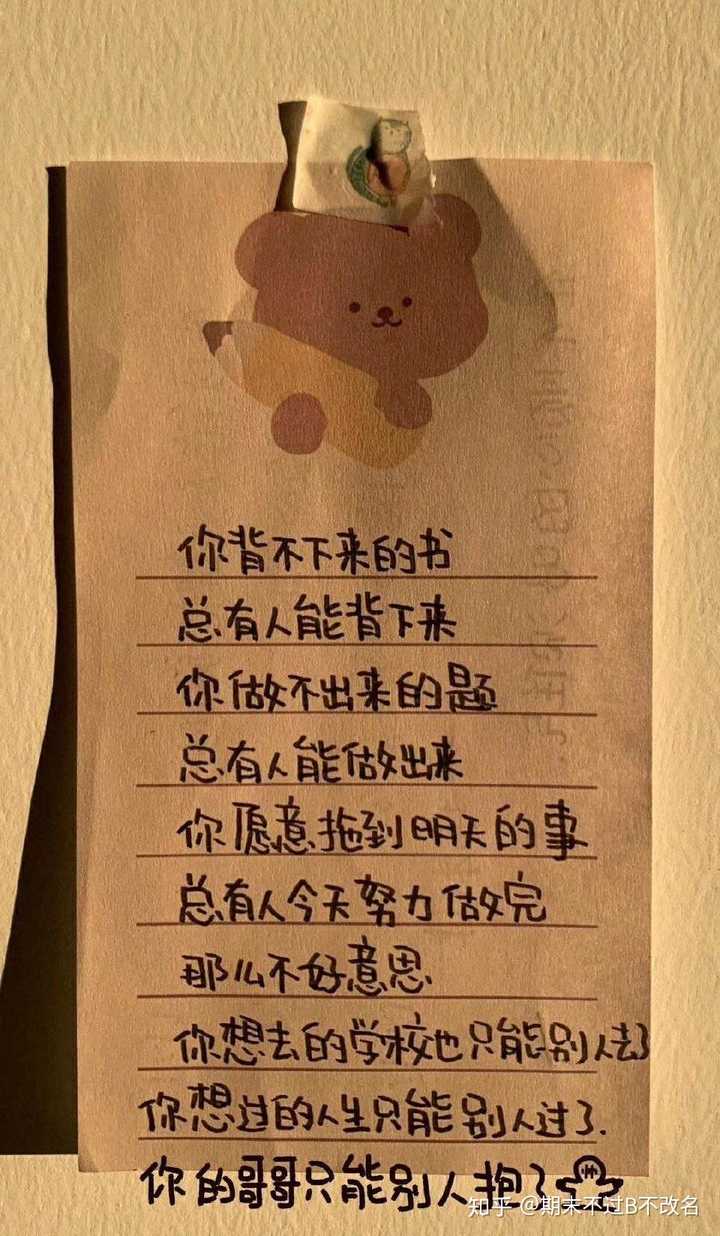 你背不下来的书
总有人能背下来
你做不出来的题
总有人能做出来
你愿意拖到明天的事
总有人今天努力做完
那么不好意思
你想去的学校也只能别人去了
你想过的人生只能别人过了.
你的哥哥只能别人抱了
知乎 @期末不过B不改名